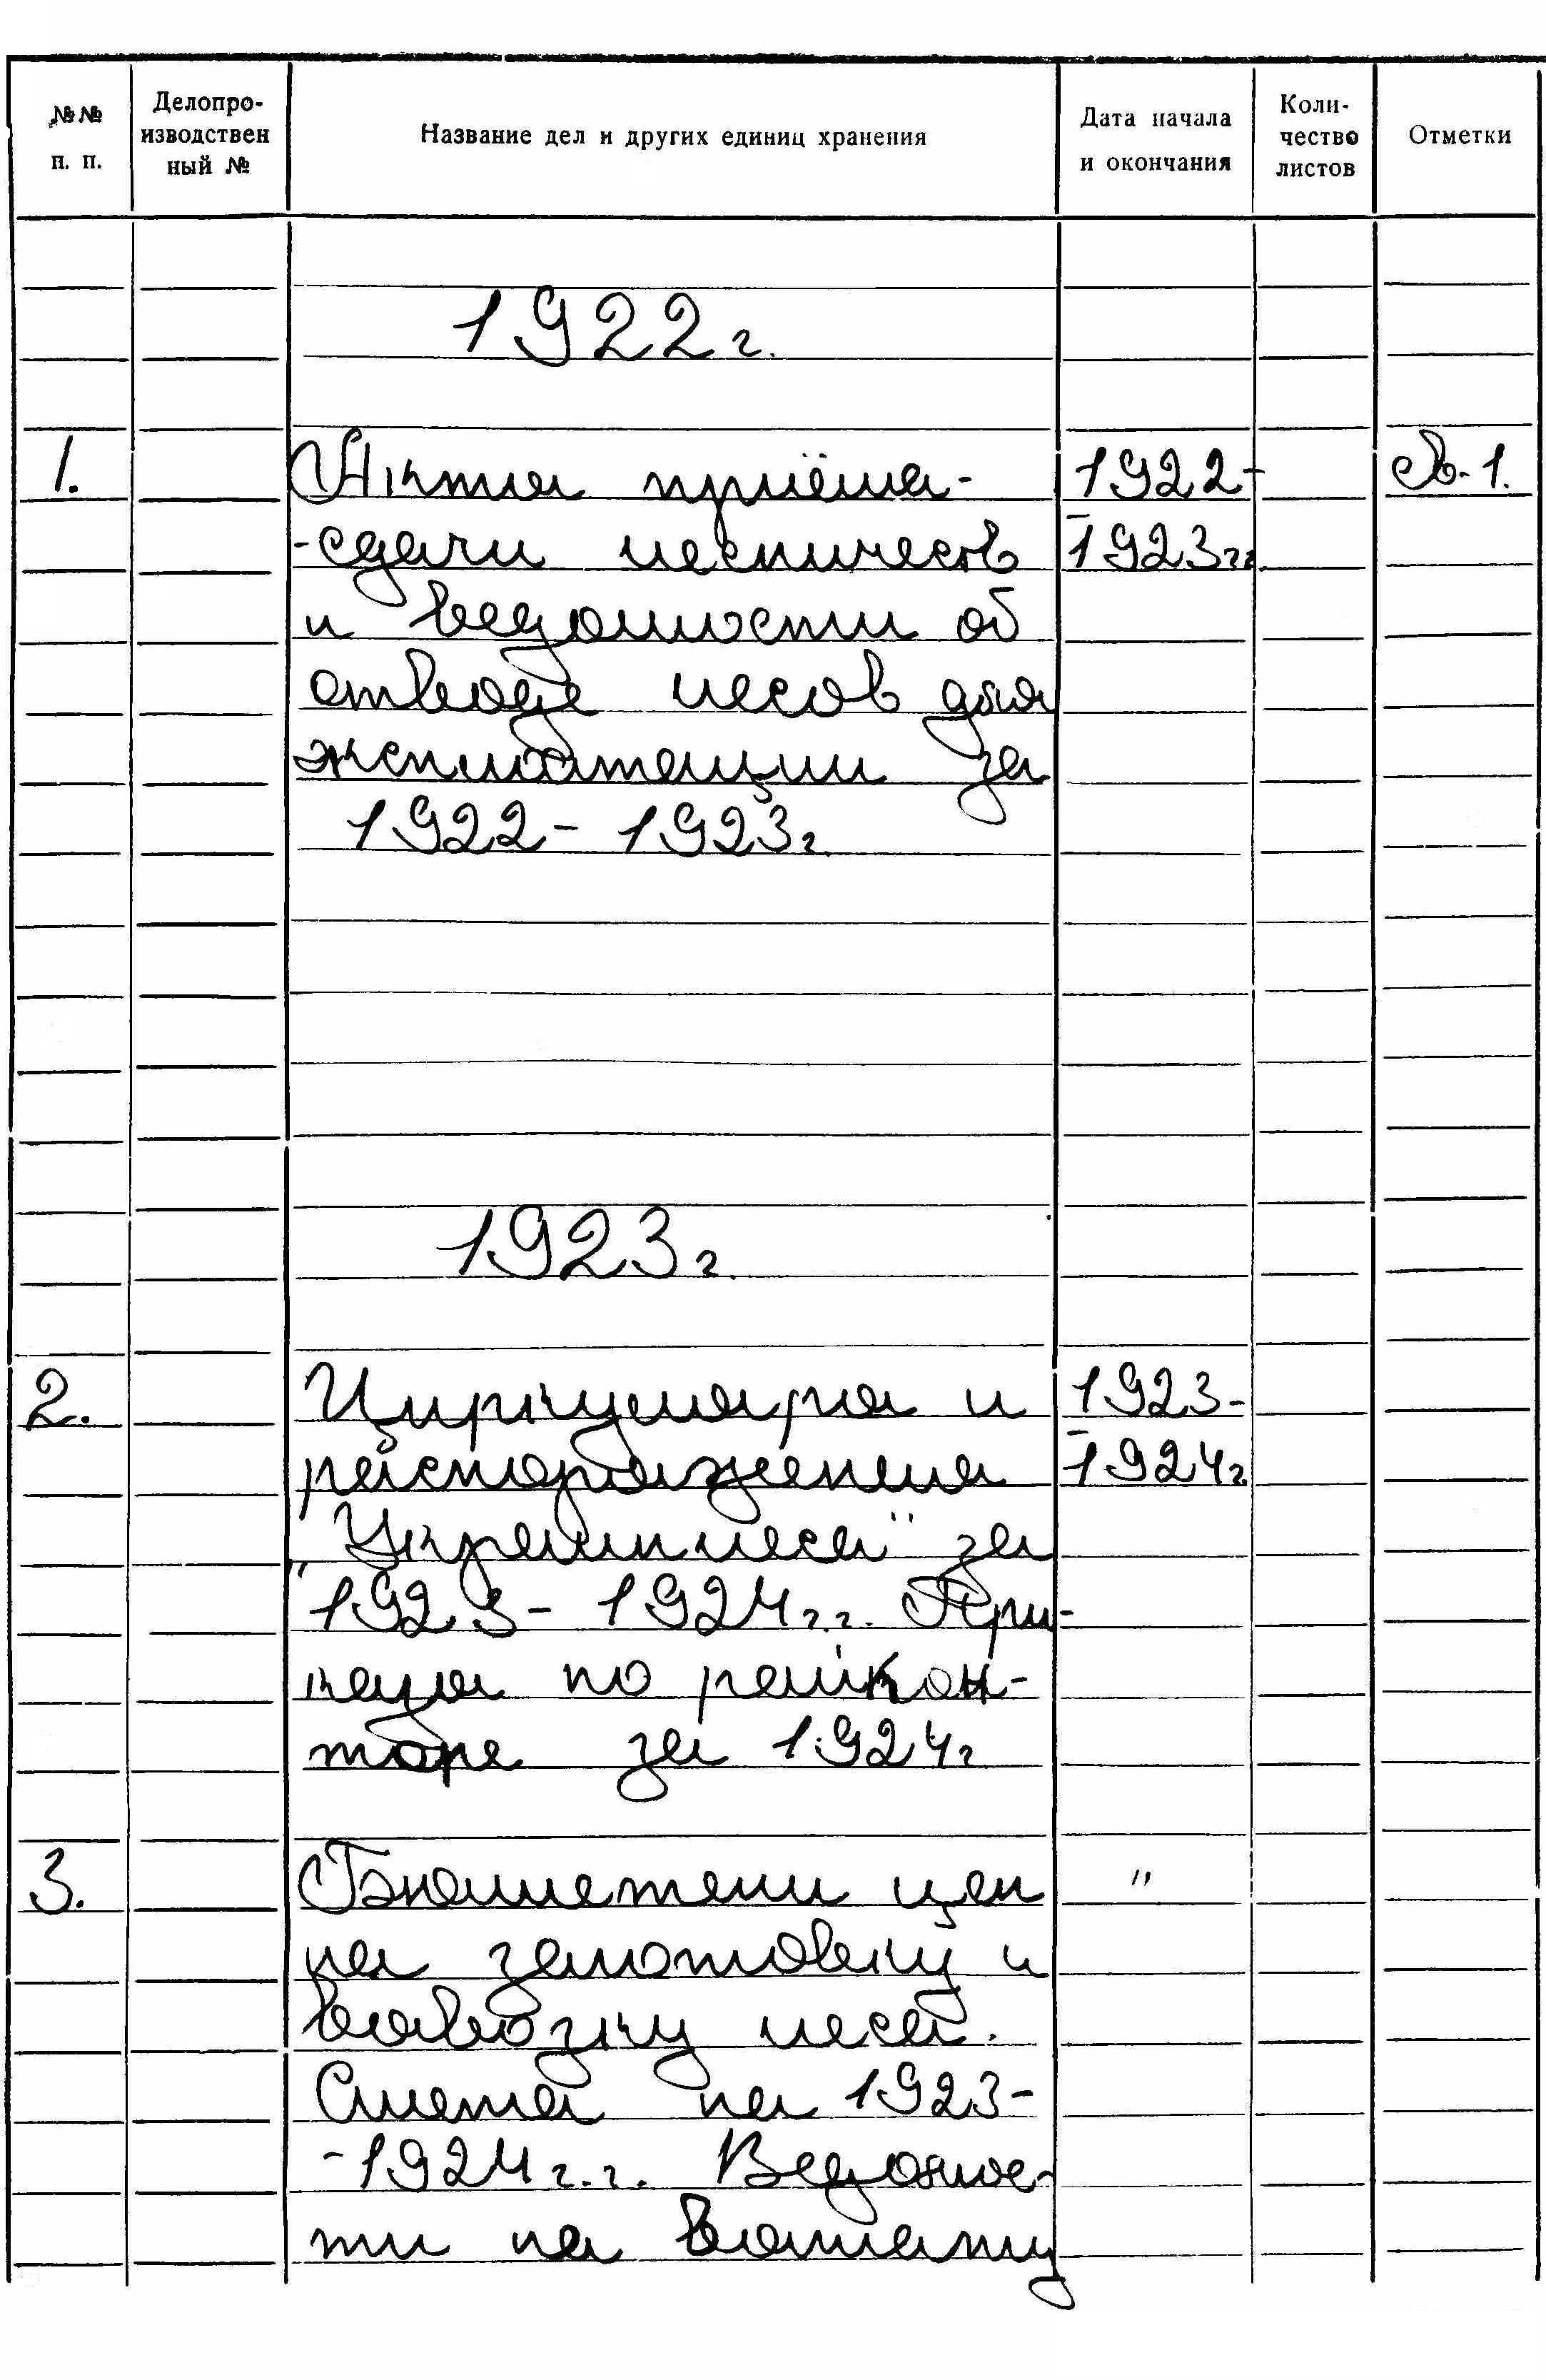 №№ п. п.
Делопро-
изводствен
ный №
Название дел и других единиц хранения
Дата начала
и окончания
Коли-
чество
листов
Отметки
1922 г.
1.
Акты приёма-
1922-
-сдачи лесничеств
-1923 гг.
и ведомости об
отводе лесов для
эксплоатации за
1922 - 1923 г.
1923 г.
2.
Циркуляры и
1923-
распоряжения
-1924 г.
"Укрлимлеса" за
1923 - 1924 г.г. При-
казы по райкон-
торе за 1924 г
3.
Бюллетени цен
"
на заготовку и
вывозку леса.
Смета на 1923-
-1924 г.г. Ведомос-
ти на выплату